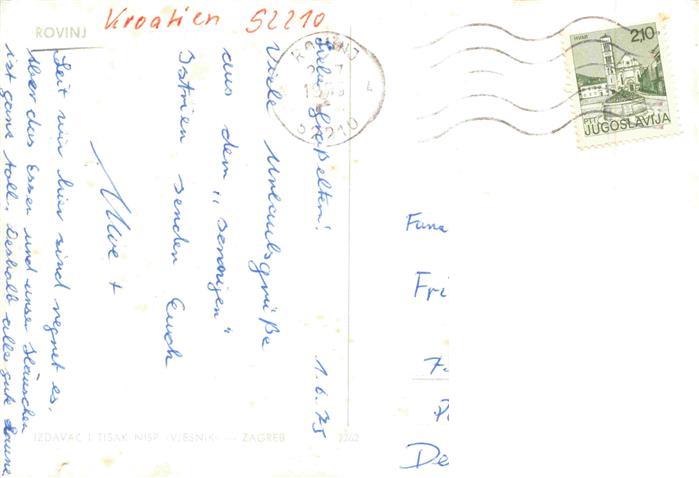 Kroatien 52210
ROVINJ
ROVINJ
52210
HVAR
2,10
PTT
JUGOSLAVIJA
1.6.75
Liebe Großeltern!
Viele Urlaubsgrüße
aus dem „sonnigen“
Istrien senden Euch
Uwe +
Seit wir hier sind regnet es,
aber das Essen und unser Häuschen
ist ganz toll. Deshalb alles gute Laune
IZDAVAČ I TISAK NISP »VJESNIK« — ZAGREB
2262
Fri
De